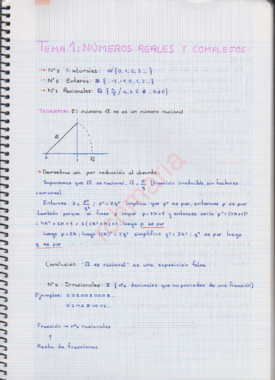 TEMA 1: NÚMEROS REALES Y COMPLEJOS
→ Nº's Naturales: N {0, 1, 2, 3...}
→ Nº's Enteros: Z {...-2, -1, 0, 1, 2...}
→ Nº's Racionales: Q {a/b / a, b ∈ Z, b≠0}
TEOREMA: El número √2 no es un número racional
→ Demostración por reducción al absurdo
Suponemos que √2 es racional. √2 = p/q (fracción irreducible, sin factores
comunes).
Entonces 2 = p²/q² ; p² = 2q² implica que p² es par, entonces p es par
también porque si fuese impar p=2K+1 y entonces sería p² = (2K+1)²
= 4K² + 4K + 1 = 2(2K²+2K)+1, luego p es par
luego p = 2K ; luego (2K)² = 2q² simplifica q² = 2K² ; q² es par luego
q es par
Conclusión: "√2 es racional" es una suposición falsa
Nº's Irracionales: I {nºs decimales que no proceden de una fracción}
Ejemplos:
Fracción → nºs racionales
↑
Resto de fracciones